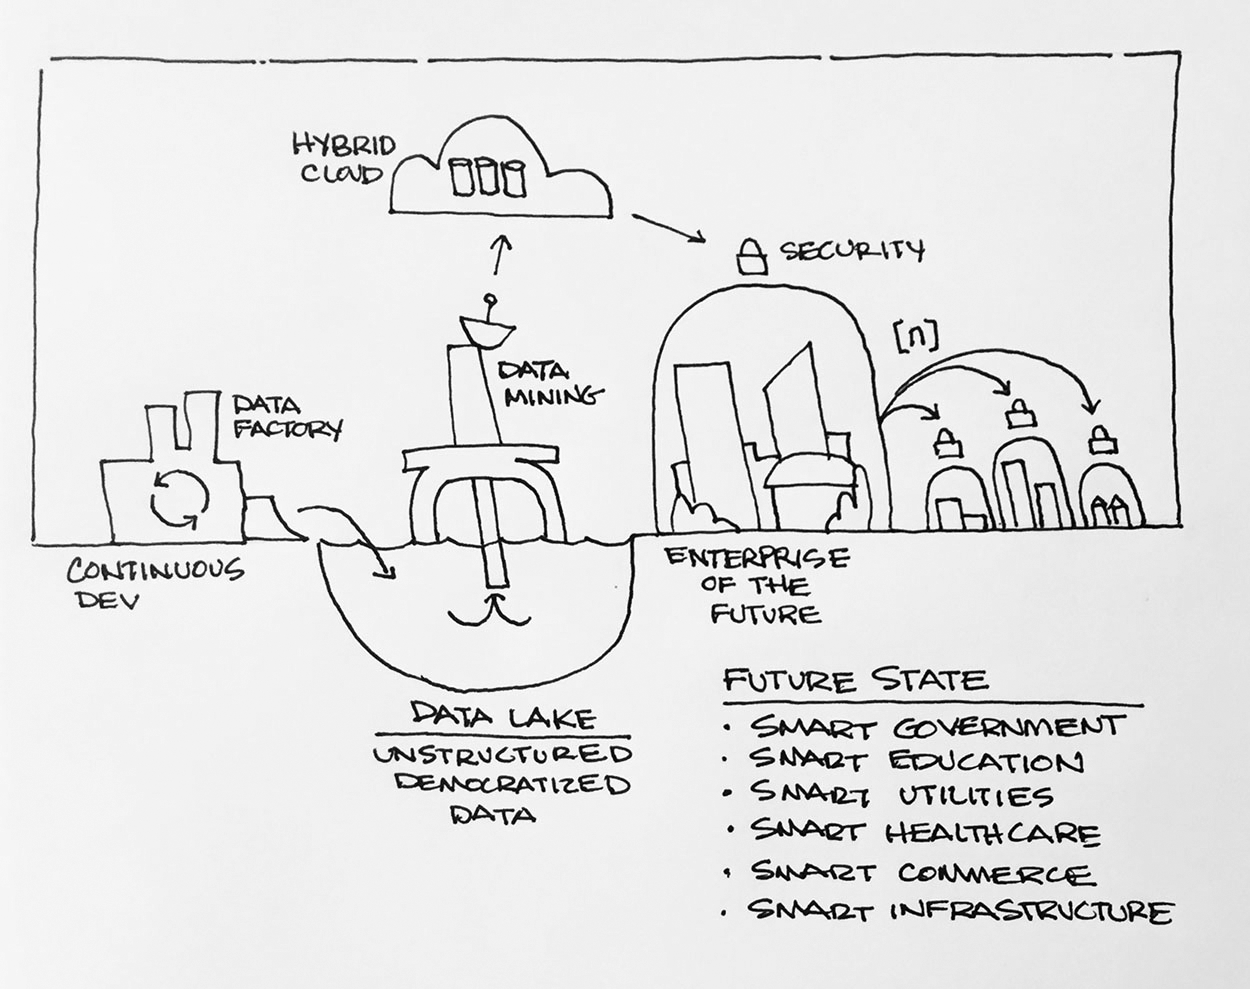 HYBRID
CLOUD
SECURITY
[n]
DATA
MINING
DATA
FACTORY
CONTINUOUS
DEV
ENTERPRISE
OF THE
FUTURE
DATA LAKE
UNSTRUCTURED
DEMOCRATIZED
DATA
FUTURE STATE
• SMART GOVERNMENT
• SMART EDUCATION
• SMART UTILITIES
• SMART HEALTHCARE
• SMART COMMERCE
• SMART INFRASTRUCTURE